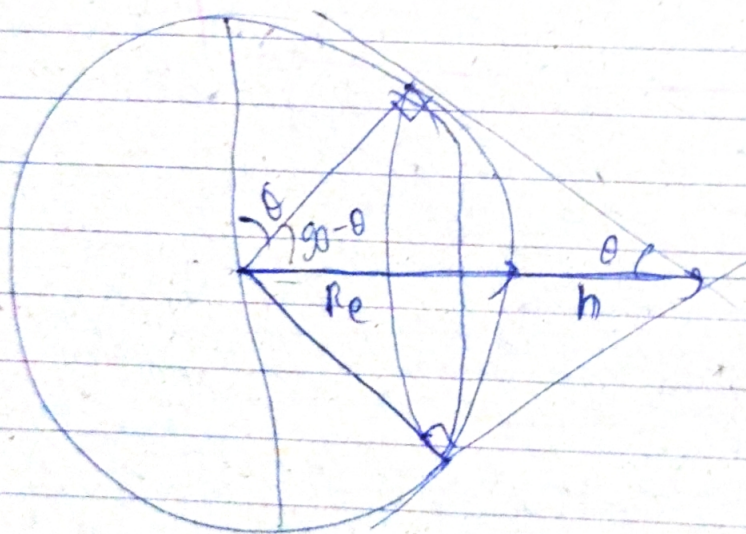 θ
90-θ
θ
Re
h